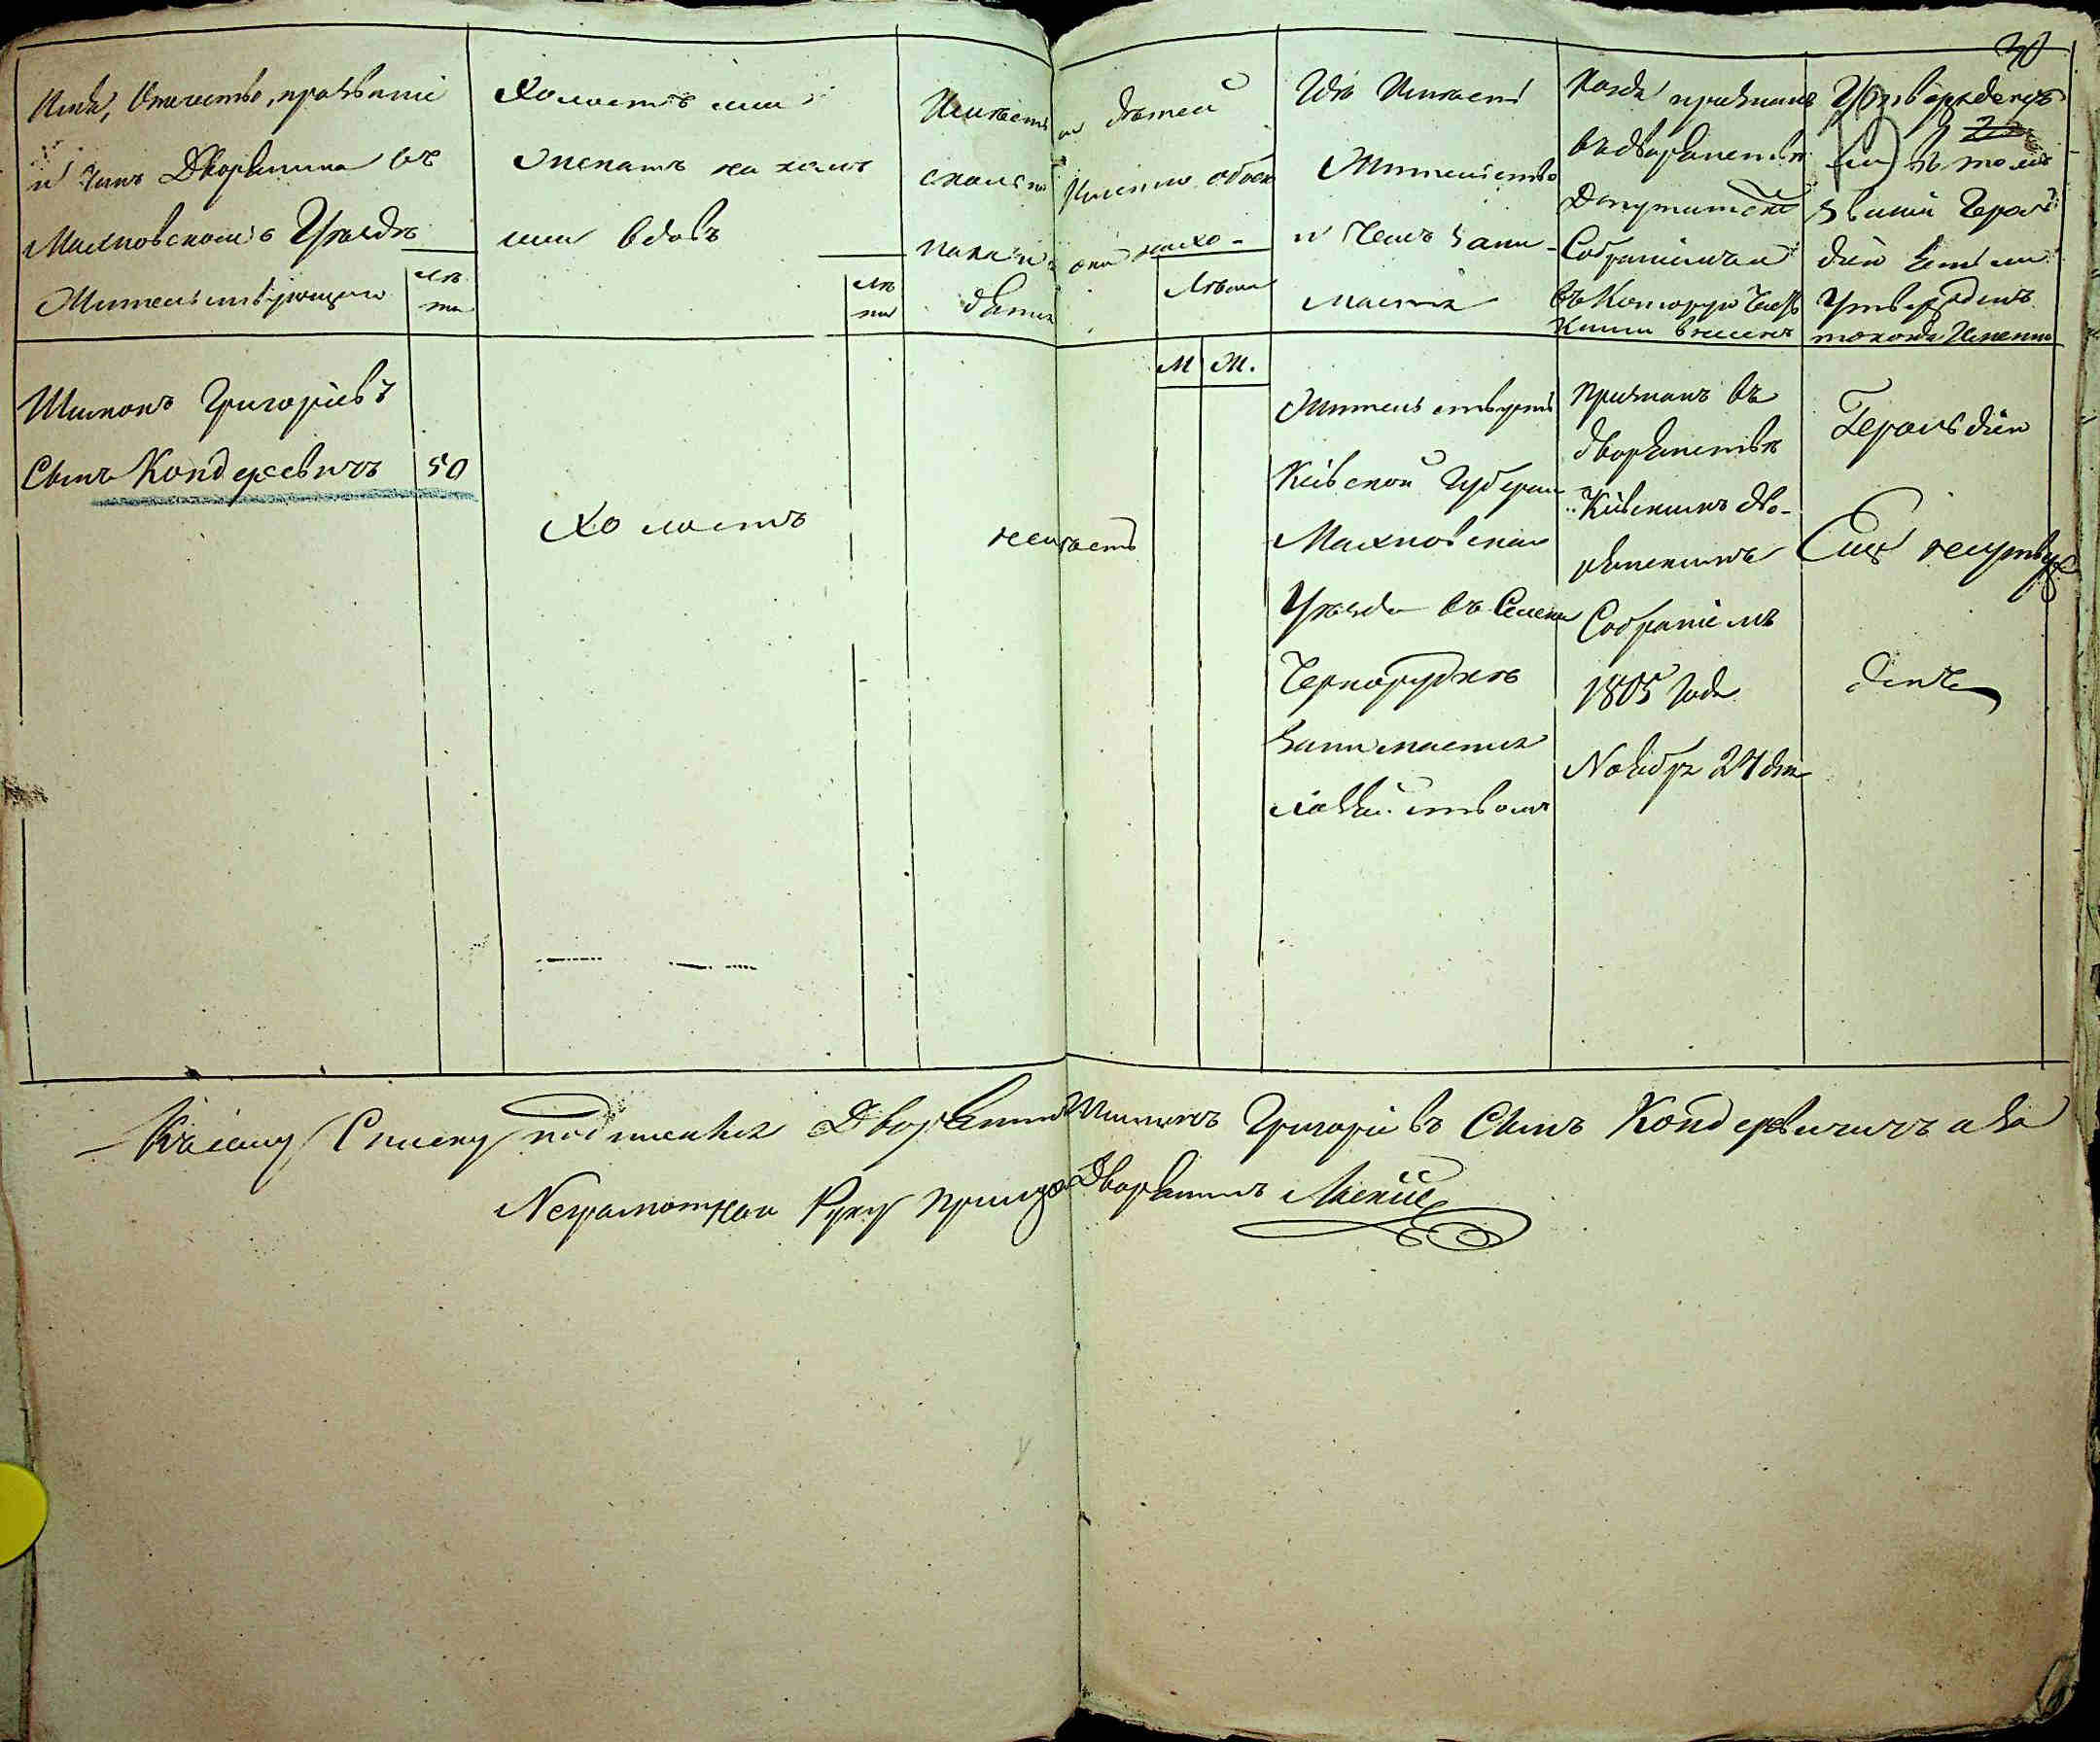 30
Имя, Отчество, прозваніе
и чинъ Дворянина въ
Махновскомъ Уѣздѣ
Жительствующаго
лѣ
та
Холостъ или
женатъ на комъ
или вдовъ
лѣ
та
Имѣетъ ли дѣтей
сколько именно обоего
пола и они нахо-
дятся
Лѣта
М Ж.
Гдѣ Имѣетъ
Жительство
и Чемъ зани-
мается
Когда признанъ
въ дворянствѣ
Депутатскимъ
Собраніемъ и
въ Которую Часть
Книги внесенъ
Утвержденъ
ли въ томъ
званіи Героль
діей Естьли
Утвержденъ
то когда Именно
Шимонъ Григоріевъ
Сынъ Кондерсевичъ 50
Холостъ
неимѣетъ
Жительствуетъ
Кіевской Губерніи
Махновскаго
Уѣзда въ Селеніи
Чернорудкѣ
занимается
Признанъ въ
дворянствѣ
Кіевскимъ Дво-
рянскимъ
Собраніемъ
1805 Года
Ноября 24 дня
Герольдіею
Еще неутверж
денъ
К сему Списку подписался Дворянинъ Шимонъ Григоріевъ Сынъ Кондерсевичъ а за
Неграмотнаго Руку Приложилъ Дворянинъ